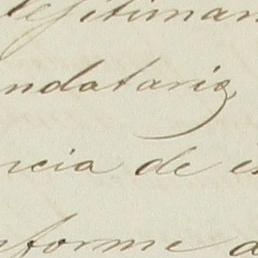 legitiman
ndatario,
ncia de
nforme a